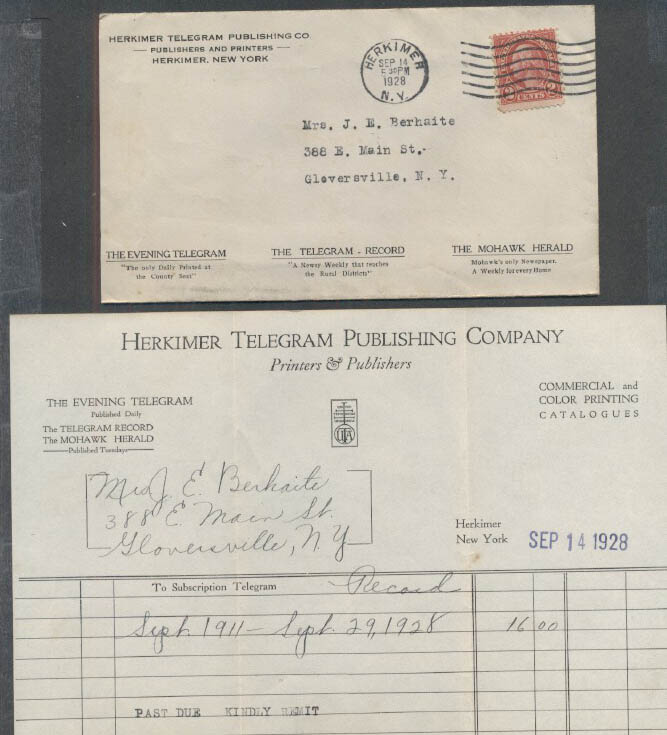 HERKIMER TELEGRAM PUBLISHING CO.
PUBLISHERS AND PRINTERS
HERKIMER, NEW YORK
HERKIMER
SEP 14
PM
1928
N.Y.
2 CENTS 2
Mrs. J. E. Berhaite
388 E. Main St.
Gloversville, N. Y.
THE EVENING TELEGRAM
"The only Daily Printed at
the County Seat"
THE TELEGRAM - RECORD
"A Newsy Weekly that reaches
the Rural Districts"
THE MOHAWK HERALD
Mohawk's only Newspaper.
A Weekly for every Home
HERKIMER TELEGRAM PUBLISHING COMPANY
Printers & Publishers
THE EVENING TELEGRAM
Published Daily
THE TELEGRAM RECORD
THE MOHAWK HERALD
Published Tuesdays
COMMERCIAL and
COLOR PRINTING
CATALOGUES
Mrs J. E. Berhaite
388 E. Main St.
Gloversville, N Y
Herkimer
New York SEP 14 1928
To Subscription Telegram Record
Sept. 1911 - Sept. 29, 1928 16 00
PAST DUE KINDLY REMIT